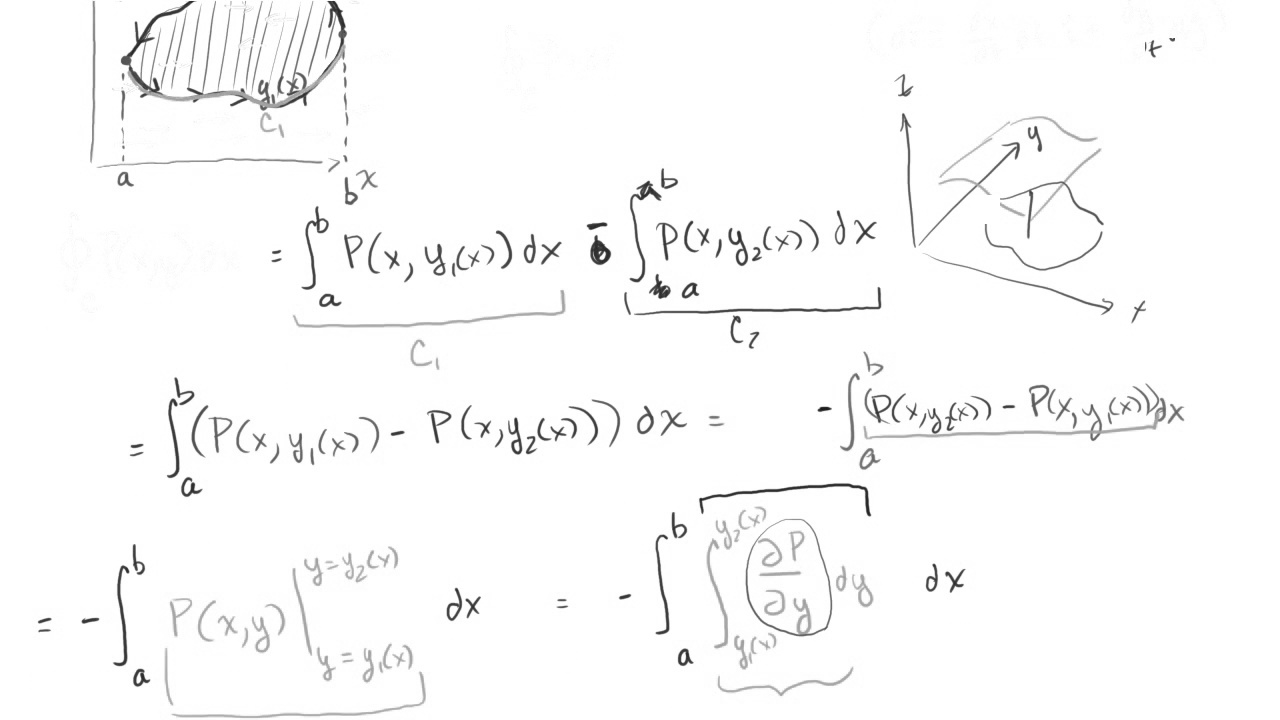 y₁(x)
C₁
a
b x
z
y
x
= ∫ₐᵇ P(x, y₁(x)) dx - ∫ₐᵇ P(x, y₂(x)) dx
C₁
C₂
= ∫ₐᵇ (P(x, y₁(x)) - P(x, y₂(x))) dx = - ∫ₐᵇ (P(x, y₂(x)) - P(x, y₁(x))) dx
= - ∫ₐᵇ P(x,y) |_{y = y₁(x)}^{y = y₂(x)} dx = - ∫ₐᵇ ∫_{y₁(x)}^{y₂(x)} ∂P/∂y dy dx